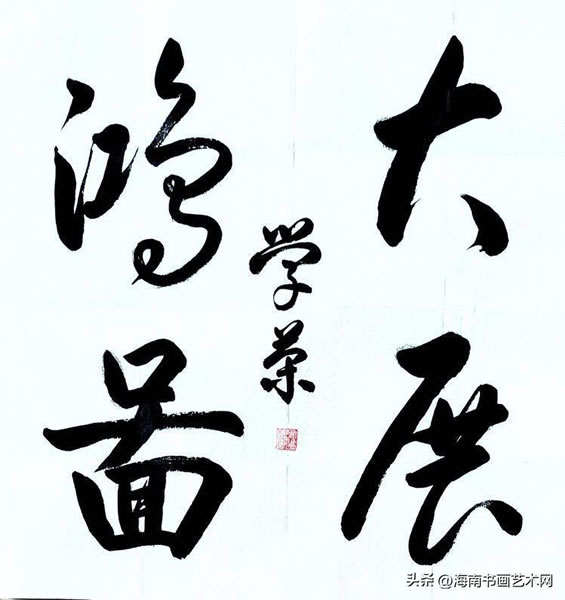 大展
鸿图
学荣
头条 @海南书画艺术网